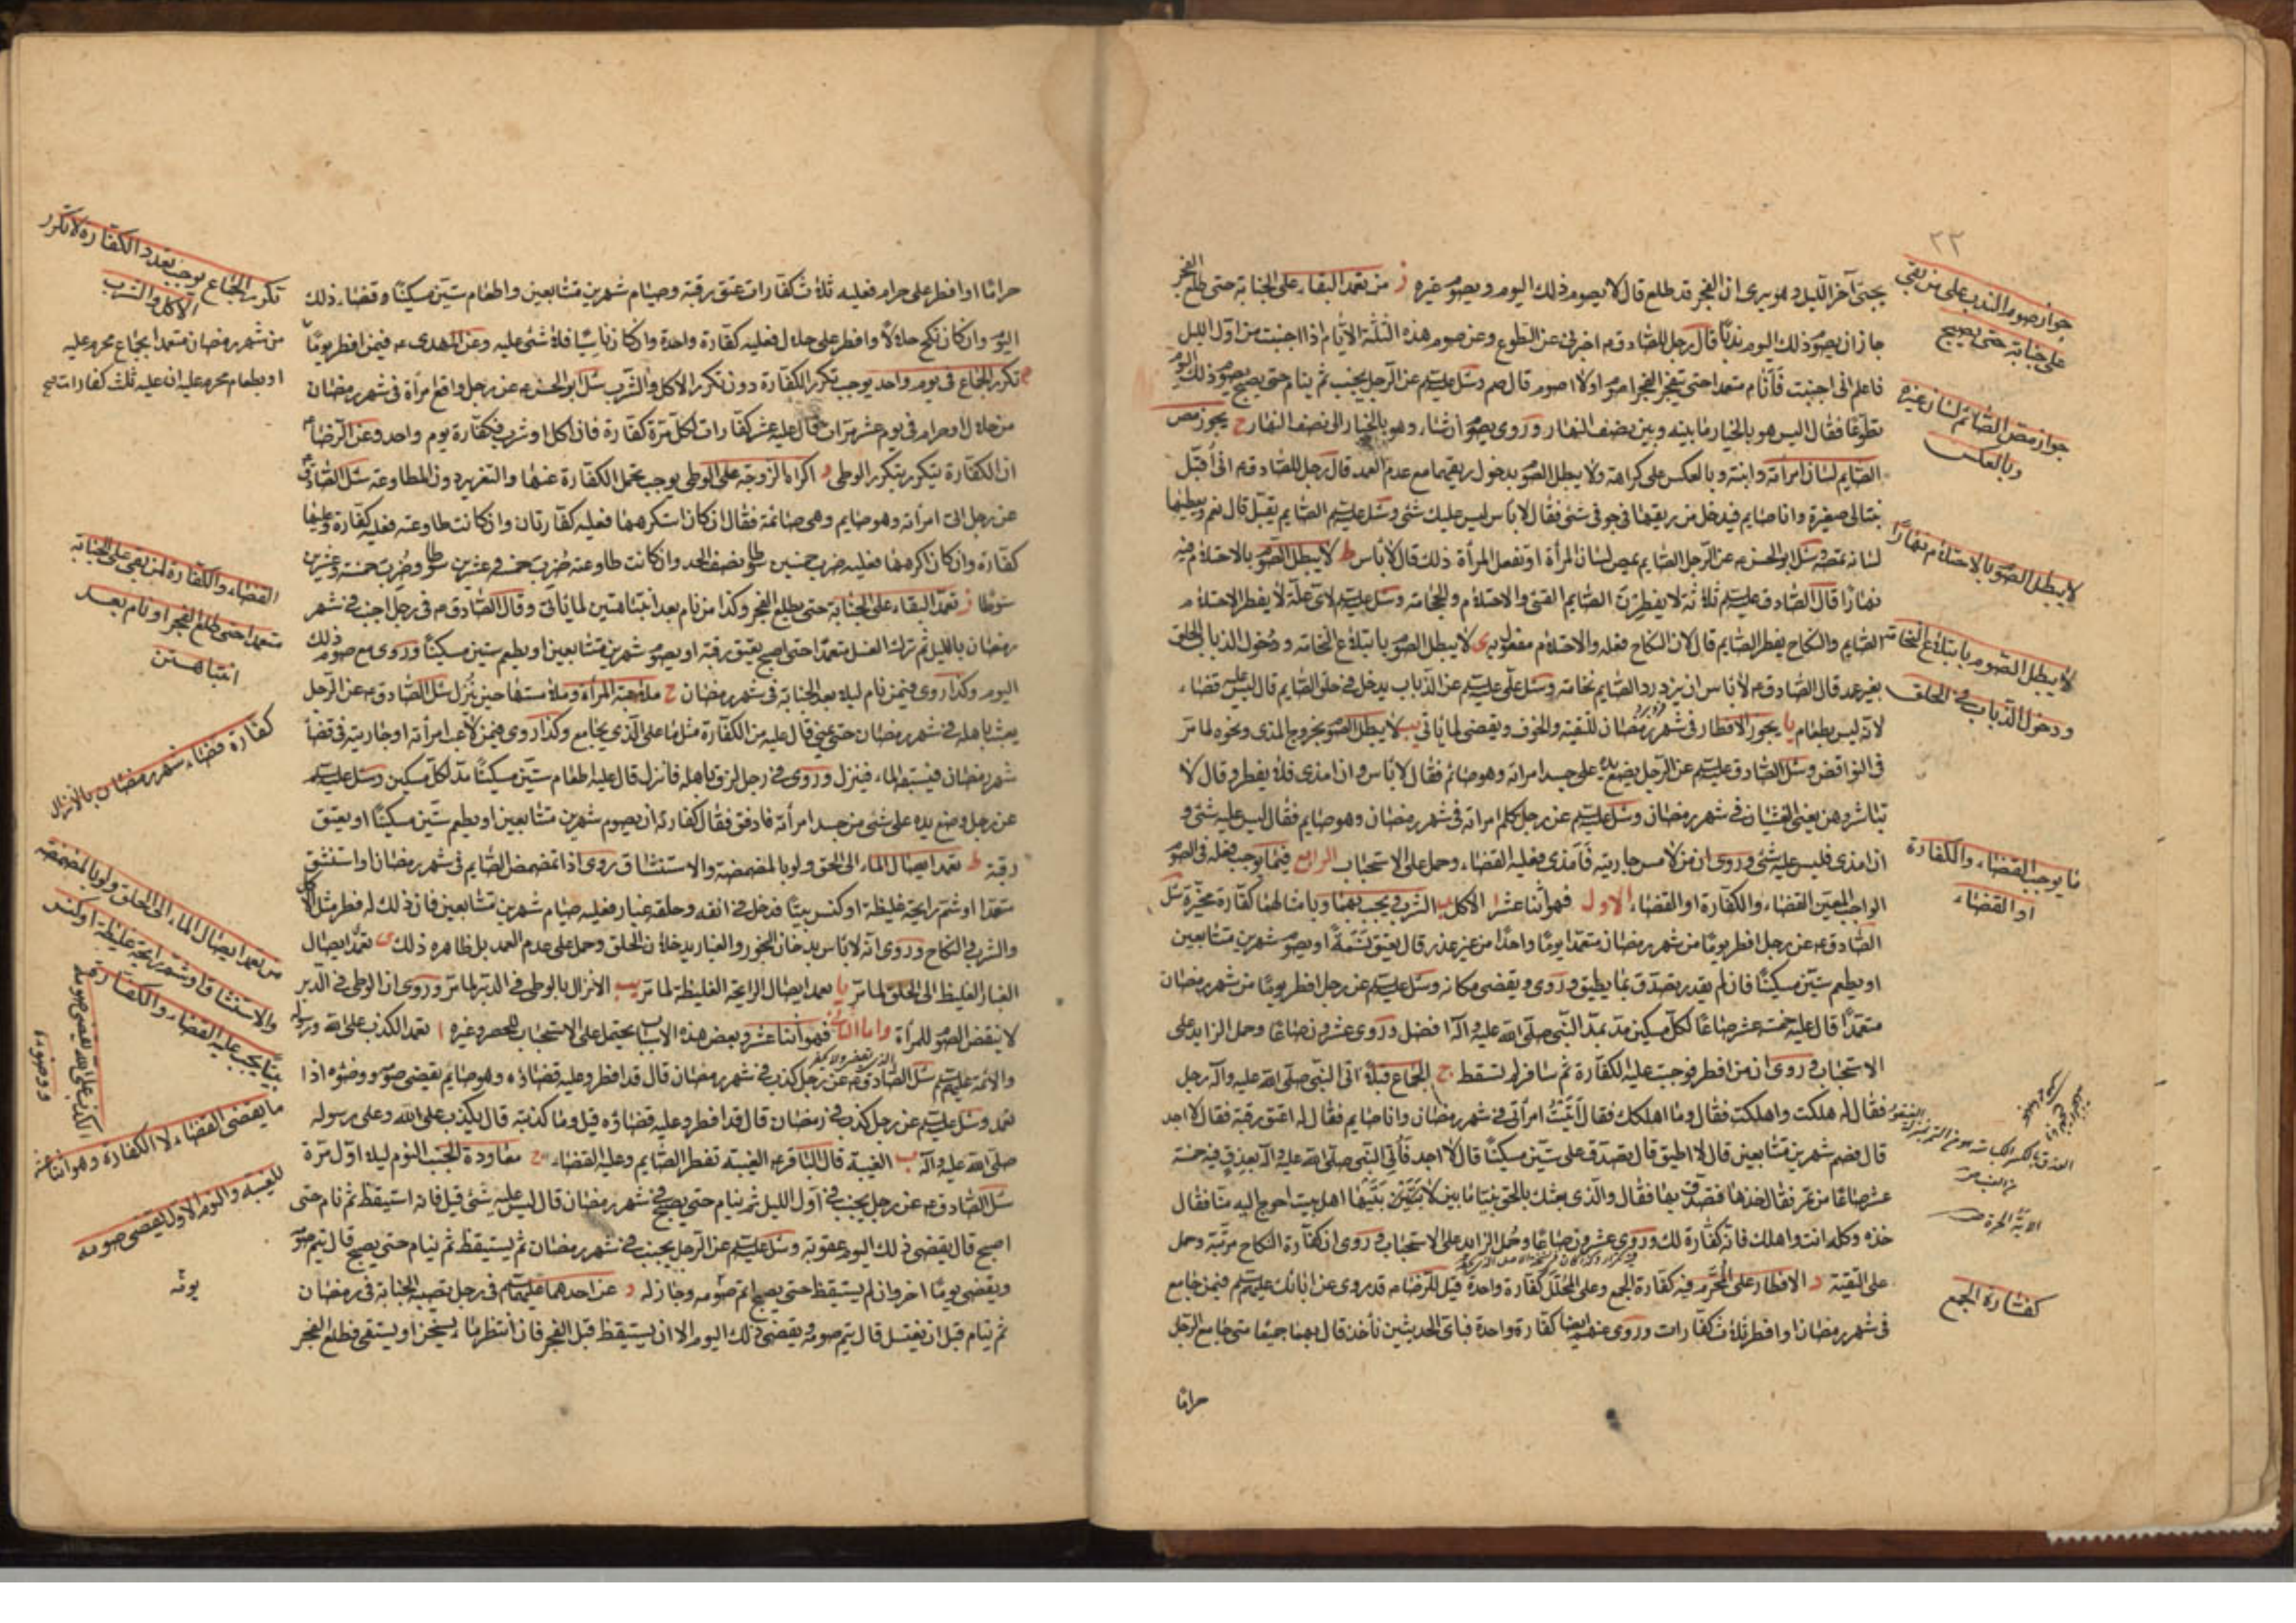 ٢٢
يجنب آخر الليل وهو يرى ان الفجر قد طلع قال لا يصوم ذلك اليوم ويصوم غيره ز من تعمد البقاء على الجنابة حتى طلع الفجر
جاز ان يصوم ذلك اليوم ندبًا قال رجل للصادق م اخبرني عن التطوع وعن صوم هذه الثلثة الايام اذا اجنبت من اول الليل
فاعلم انى اجنبت فأنام متعمدا حتى ينفجر الفجر اصوم او لا اصوم قال صم وسئل عليه السلم عن الرجل يجنب ثم ينام حتى يصبح ايصوم ذلك اليوم
تطوعًا فقال اليس هو بالخيار ما بينه وبين نصف النهار وروى يصوم ان شاء وهو بالخيار الى نصف النهار ح يجوز مص
الصايم لسان امرأته وابنته وبالعكس على كراهة ولا يبطل الصوم بدخول ريقهما مع عدم العمد قال رجل للصادق م انى أقبل
بنتا لى صغيرة وانا صايم فيدخل من ريقها في جوفى شئ فقال لا بأس ليس عليك شئ وسئل عليه السلم الصايم يقبل قال نعم ويعطيها
لسانه تمصه وسئل ابو الحسن م عن الرجل الصايم يمص لسان المرأة او تفعل المرأة ذلك قال لا بأس ط لا يبطل الصوم بالاحتلام فيه
نهارا قال الصادق عليه السلم ثلاثة لا يفطرن الصايم القئ والاحتلام والحجامة وسئل عليه السلم لاى علة لا يفطر الاحتلام
الصايم والنكاح يفطر الصايم قال لان النكاح فعله والاحتلام مفعول به ى لا يبطل الصوم بابتلاع النخامة ودخول الذباب الحلق
بغير عمد قال الصادق م لا بأس ان يزدرد الصايم نخامته وسئل على عليه السلم عن الذباب يدخل في حلق الصايم قال ليس عليه قضاء
لانه ليس بطعام يا يجوز الافطار في شهر رمضان للتقية والخوف ويقضى لما يأتى يب لا يبطل الصوم بخروج المذى ونحوه لما مر
في النواقض وسئل الصادق عليه السلم عن الرجل يضع يده على جسد امرأته وهو صائم فقال لا بأس وان امذى فلا يفطر وقال لا
تباشروهن يعنى الغشيان في شهر رمضان وسئل عليه السلم عن رجل كلم امرأته في شهر رمضان وهو صايم فقال ليس عليه شئ و
ان امذى فليس عليه شئ وروى ان من لامس جاريته فأمذى فعليه القضاء وحمل على الاستحباب الرابع فيما يوجب فعله في الصوم
الواجب المعين القضاء والكفارة او القضاء الاول فهو اثنا عشر ا الاكل ب الشرب فيجب بهما وبامثالهما كفارة مخيرة سئل
الصادق م عن رجل افطر يومًا من شهر رمضان متعمدا يومًا واحدًا من غير عذر قال يعتق نسمة او يصوم شهرين متتابعين
او يطعم ستين مسكينًا فان لم يقدر تصدق بما يطيق وروى ويقضى مكانه وسئل عليه السلم عن رجل افطر يومًا من شهر رمضان
متعمدًا قال عليه خمسة عشر صاعًا لكل مسكين مد بمد النبى صلى الله عليه وآله افضل وروى عشرون صاعًا وحمل الزايد على
الاستحباب وروى ان من افطر فوجبت عليه الكفارة ثم سافر لم تسقط ج الجماع قبلا اتى النبى صلى الله عليه وآله رجل
فقال له هلكت واهلكت فقال وما اهلكك فقال أتيت امرأتى في شهر رمضان وانا صايم فقال له اعتق رقبة فقال لا اجد
قال فصم شهرين متتابعين قال لا اطيق قال تصدق على ستين مسكينًا قال لا اجد فأتى النبى صلى الله عليه وآله بعذق فيه خمسة
عشر صاعًا من تمر فقال خذها فتصدق بها فقال والذى بعثك بالحق نبيًا ما بين لابتيها اهل بيت احوج اليه منا فقال
خذه وكله انت واهلك فانه كفارة لك وروى عشرون صاعًا وحمل الزايد على الاستحباب وروى ان كفارة النكاح مرتبة وحمل
على التقية د الافطار على المحرم فيه كفارة الجمع وعلى المحلل كفارة واحدة قيل للرضا م قد روى عن ابائك عليهم السلم فيمن جامع
في شهر رمضان او افطر ثلاث كفارات وروى عنهم ايضا كفارة واحدة فبأى الحديثين نأخذ قال بهما جميعًا متى جامع الرجل
حرامًا
جواز صوم الندب على من بقى
على جنابة حتى يصبح
جواز مص الصائم لسان غيره
وبالعكس
لا يبطل الصوم بالاحتلام نهارًا
لا يبطل الصوم بابتلاع النخامة
ودخول الذباب في الحلق
ما يوجب القضاء والكفارة
او القضاء
كفارة الجمع
حرامًا او افطر على حرام فعليه ثلاث كفارات عتق رقبة وصيام شهرين متتابعين واطعام ستين مسكينًا وقضاء ذلك
اليوم وان كان نكح حلالًا وافطر على حلال فعليه كفارة واحدة وان كان ناسيًا فلا شئ عليه وعن المهدى م فيمن افطر يومًا
ه تكرر الجماع في يوم واحد يوجب تكرر الكفارة دون تكرر الاكل والشرب سئل ابو الحسن م عن رجل واقع امرأة في شهر رمضان
من حلال او حرام في يوم عشر مرات قال عليه عشر كفارات لكل مرة كفارة فان اكل او شرب فكفارة يوم واحد وعن الرضا م
ان الكفارة تتكرر بتكرر الوطى و اكراه الزوجة على الوطى يوجب تحمل الكفارة عنها والتعزير دون المطاوعة سئل الصادق م
عن رجل اتى امرأته وهو صايم وهى صائمة فقال ان كان استكرهها فعليه كفارتان وان كانت طاوعته فعليه كفارة وعليها
كفارة وان كان اكرهها فعليه ضرب خمسين سوطا نصف الحد وان كانت طاوعته ضرب خمسة وعشرين سوطا وضربت خمسة وعشرين
سوطا ز تعمد البقاء على الجنابة حتى يطلع الفجر وكذا من نام بعد انتباهتين لما يأتى وقال الصادق م في رجل اجنب في شهر
رمضان بالليل ثم ترك الغسل متعمدًا حتى اصبح يعتق رقبة او يصوم شهرين متتابعين او يطعم ستين مسكينًا وروى مع صوم ذلك
اليوم وكذا روى فيمن نام ليلا بعد الجنابة في شهر رمضان ح ملاعبة المرأة وملامستها حين ينزل سئل الصادق م عن الرجل
يعبث باهله في شهر رمضان حتى يمنى قال عليه من الكفارة مثل ما على الذى يجامع وكذا روى فيمن لاعب امرأته او جاريته في قضاء
شهر رمضان فيسبقه الماء فينزل وروى في رجل لزق باهله فأنزل قال عليه اطعام ستين مسكينًا مد لكل مسكين وسئل عليه السلم
عن رجل وضع يده على شئ من جسد امرأته فادفق فقال كفارته ان يصوم شهرين متتابعين او يطعم ستين مسكينًا او يعتق
رقبة ط تعمد ايصال الماء الى الحلق ولو بالمضمضة والاستنشاق روى اذا تمضمض الصايم في شهر رمضان او استنشق
متعمدا او شم رايحة غليظة او كنس بيتًا فدخل في انفه وحلقه غبار فعليه صيام شهرين متتابعين فان ذلك له فطر مثل الاكل
والشرب والنكاح وروى انه لا بأس بدخان البخور والغبار يدخلان الحلق وحمل على عدم العمد بل ظاهره ذلك ى تعمد ايصال
الغبار الغليظ الى الحلق لما مر يا تعمد ايصال الرايحة الغليظة لما مر يب الانزال بالوطى في الدبر لما مر وروى ان الوطى في الدبر
لا ينقض الصوم للمرأة واما الثانى فهو اثنا عشر وبعض هذه الاسباب يحتمل على الاستحباب للحصر وغيره ا تعمد الكذب على الله ورسوله
والائمة عليهم السلم سئل الصادق م عن رجل كذب في شهر رمضان قال قد افطر وعليه قضاؤه وهو صايم يقضى صومه ووضوءه اذا
تعمد وسئل عليه السلم عن رجل كذب في رمضان قال قد افطر وعليه قضاؤه قيل وما كذبته قال يكذب على الله وعلى رسوله
صلى الله عليه وآله ب الغيبة قال الباقر م الغيبة تفطر الصايم وعليه القضاء ج معاودة الجنب النوم ليلا اول مرة
سئل الصادق م عن رجل يجنب في اول الليل ثم ينام حتى يصبح في شهر رمضان قال ليس عليه شئ قيل فانه استيقظ ثم نام حتى
اصبح قال يقضى ذلك اليوم عقوبة وسئل عليه السلم عن الرجل يجنب في شهر رمضان ثم يستيقظ ثم ينام حتى يصبح قال يتم صومه
ويقضى يومًا اخر وان لم يستيقظ حتى يصبح اتم صومه وجاز له د عن احدهما عليهما السلم في رجل تصيبه الجنابة في رمضان
ثم ينام قبل ان يغتسل قال يتم صومه ويقضى ذلك اليوم الا ان يستيقظ قبل الفجر فان انتظر ماء يسخن او يستقى فطلع الفجر
تكرر الجماع يوجب تعدد الكفارة لا تكرر
الاكل والشرب
من شهر رمضان متعمدا بجماع محرم عليه
او بطعام محرم عليه ان عليه ثلث كفارات صح
القضاء والكفارة لمن بقى على الجنابة
متعمدا حتى طلع الفجر او نام بعد
انتباهتين
كفارة قضاء شهر رمضان بالانزال
من تعمد ايصال الماء الى الحلق ولو بالمضمضة
والاستنشاق او شم رايحة غليظة او كنس
بيتًا يجب عليه القضاء والكفارة
الكذب على الله يقضى صومه
ووضوءه
ما يقتضى القضاء لا الكفارة وهو اثنا عشر
للغيبة والنوم الاول يقضى صومه
يومه